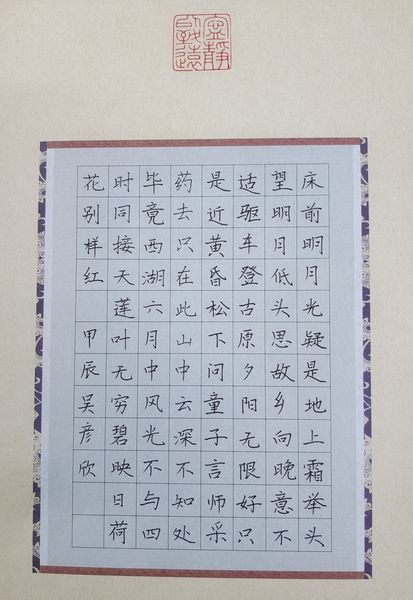 寧靜
致遠
床前明月光疑是地上霜举头
望明月低头思故乡向晚意不
适驱车登古原夕阳无限好只
是近黄昏松下问童子言师采
药去只在此山中云深不知处
毕竟西湖六月中风光不与四
时同接天莲叶无穷碧映日荷
花别样红 甲辰吴彦欣